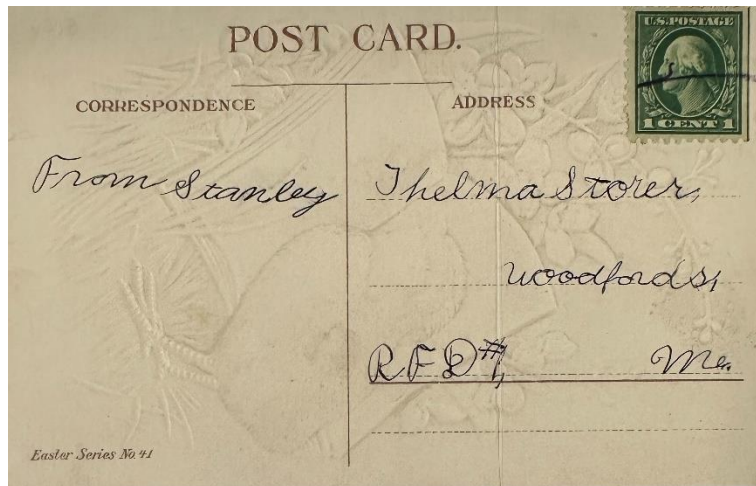 POST CARD.
U.S. POSTAGE
1 CENT 1
CORRESPONDENCE
ADDRESS
From Stanley
Thelma Storer,
Woodfords,
RFD #1, Me.
Easter Series No. 41